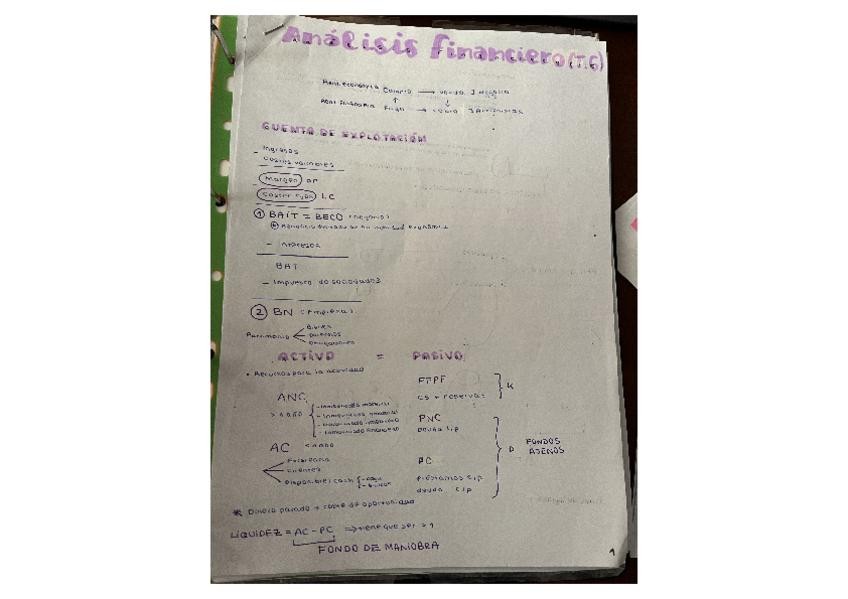 Análisis financiero (T.6)
Real economía Compro → vendo } negocio
Pago → cobro
CUENTA DE EXPLOTACIÓN
- Ingresos
Costes variables
Margen
Costes fijos
① BAIT = BECO (negocio)
- Intereses
BAT
- Impuesto de sociedades
② BN (empresa)
Patrimonio
Bienes
Derechos
Obligaciones
ACTIVO = PASIVO
• Recursos para la actividad
ANC
> 1 año
- Inmovilizado material
- Inmovilizado financiero
AC < 1 año
Existencias
Clientes
Disponible (cash)
FFPP
CS + reservas
K
PNC
Deuda L.p
PC
Préstamos C.p
deuda C.p
D FONDOS AJENOS
* Dinero parado → coste de oportunidad
LIQUIDEZ = AC - PC ⇒ tiene que ser > 1
FONDO DE MANIOBRA
1